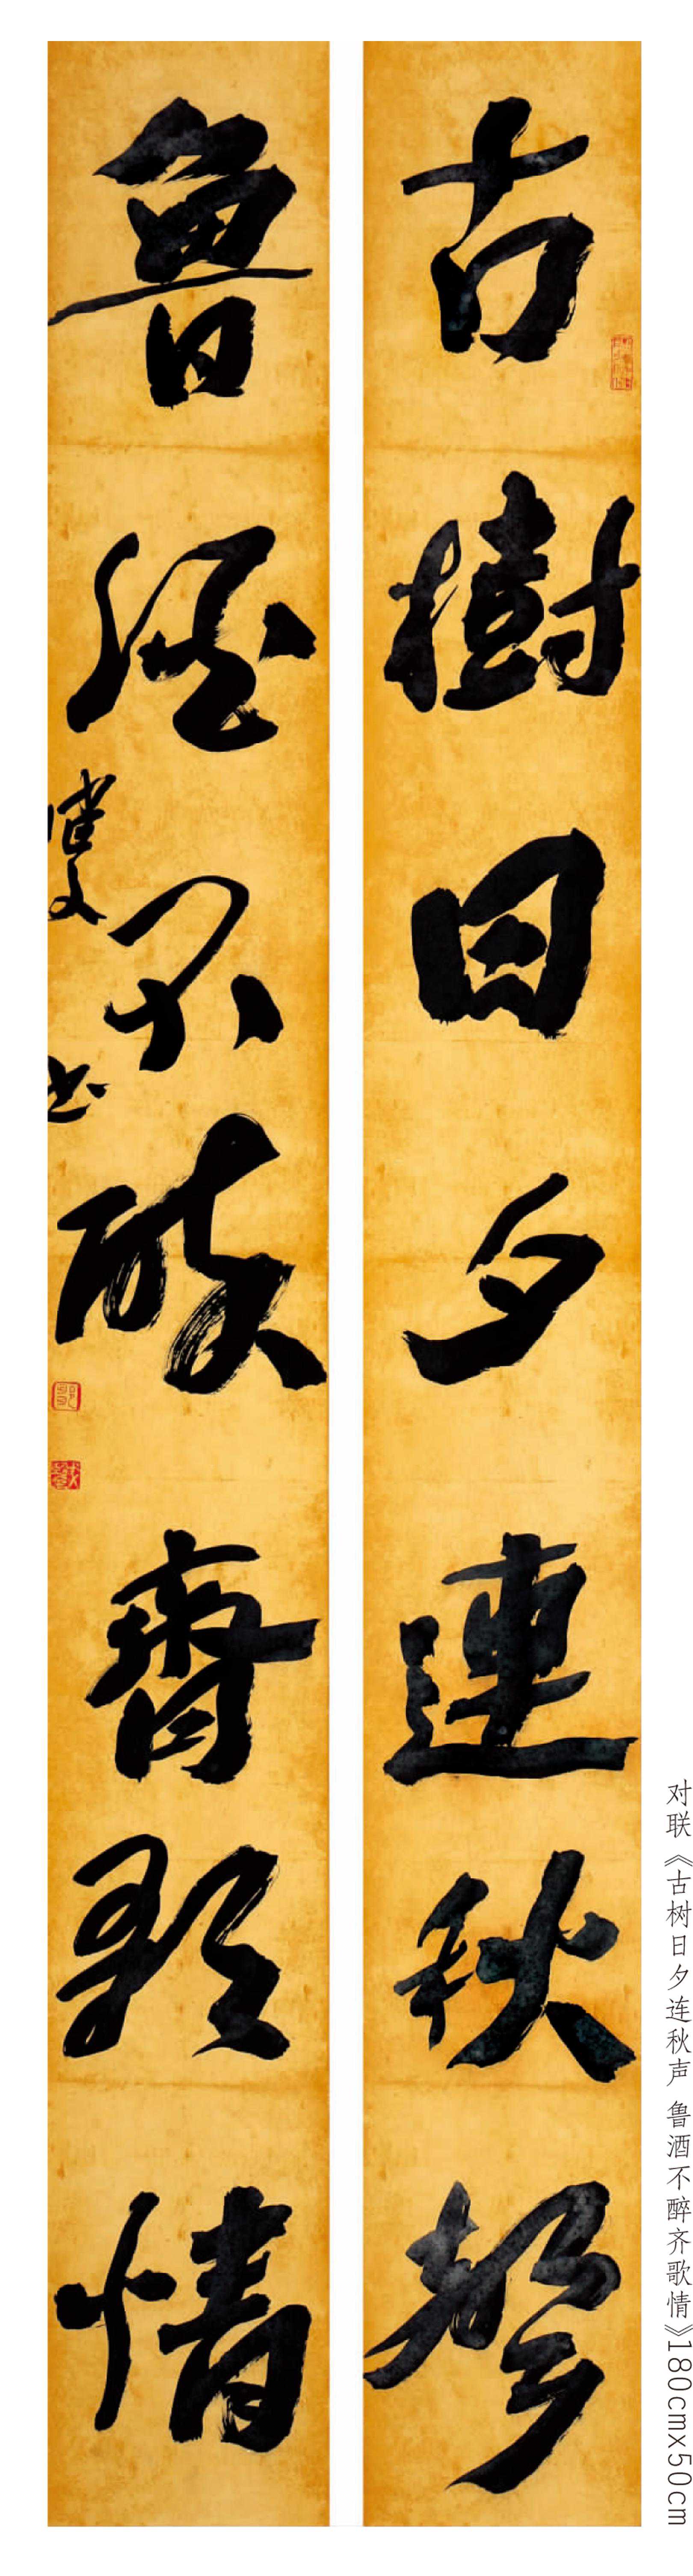 古樹日夕連秋聲
魯酒不醉齊歌情
书
对联《古树日夕连秋声 鲁酒不醉齐歌情》180cmx50cm